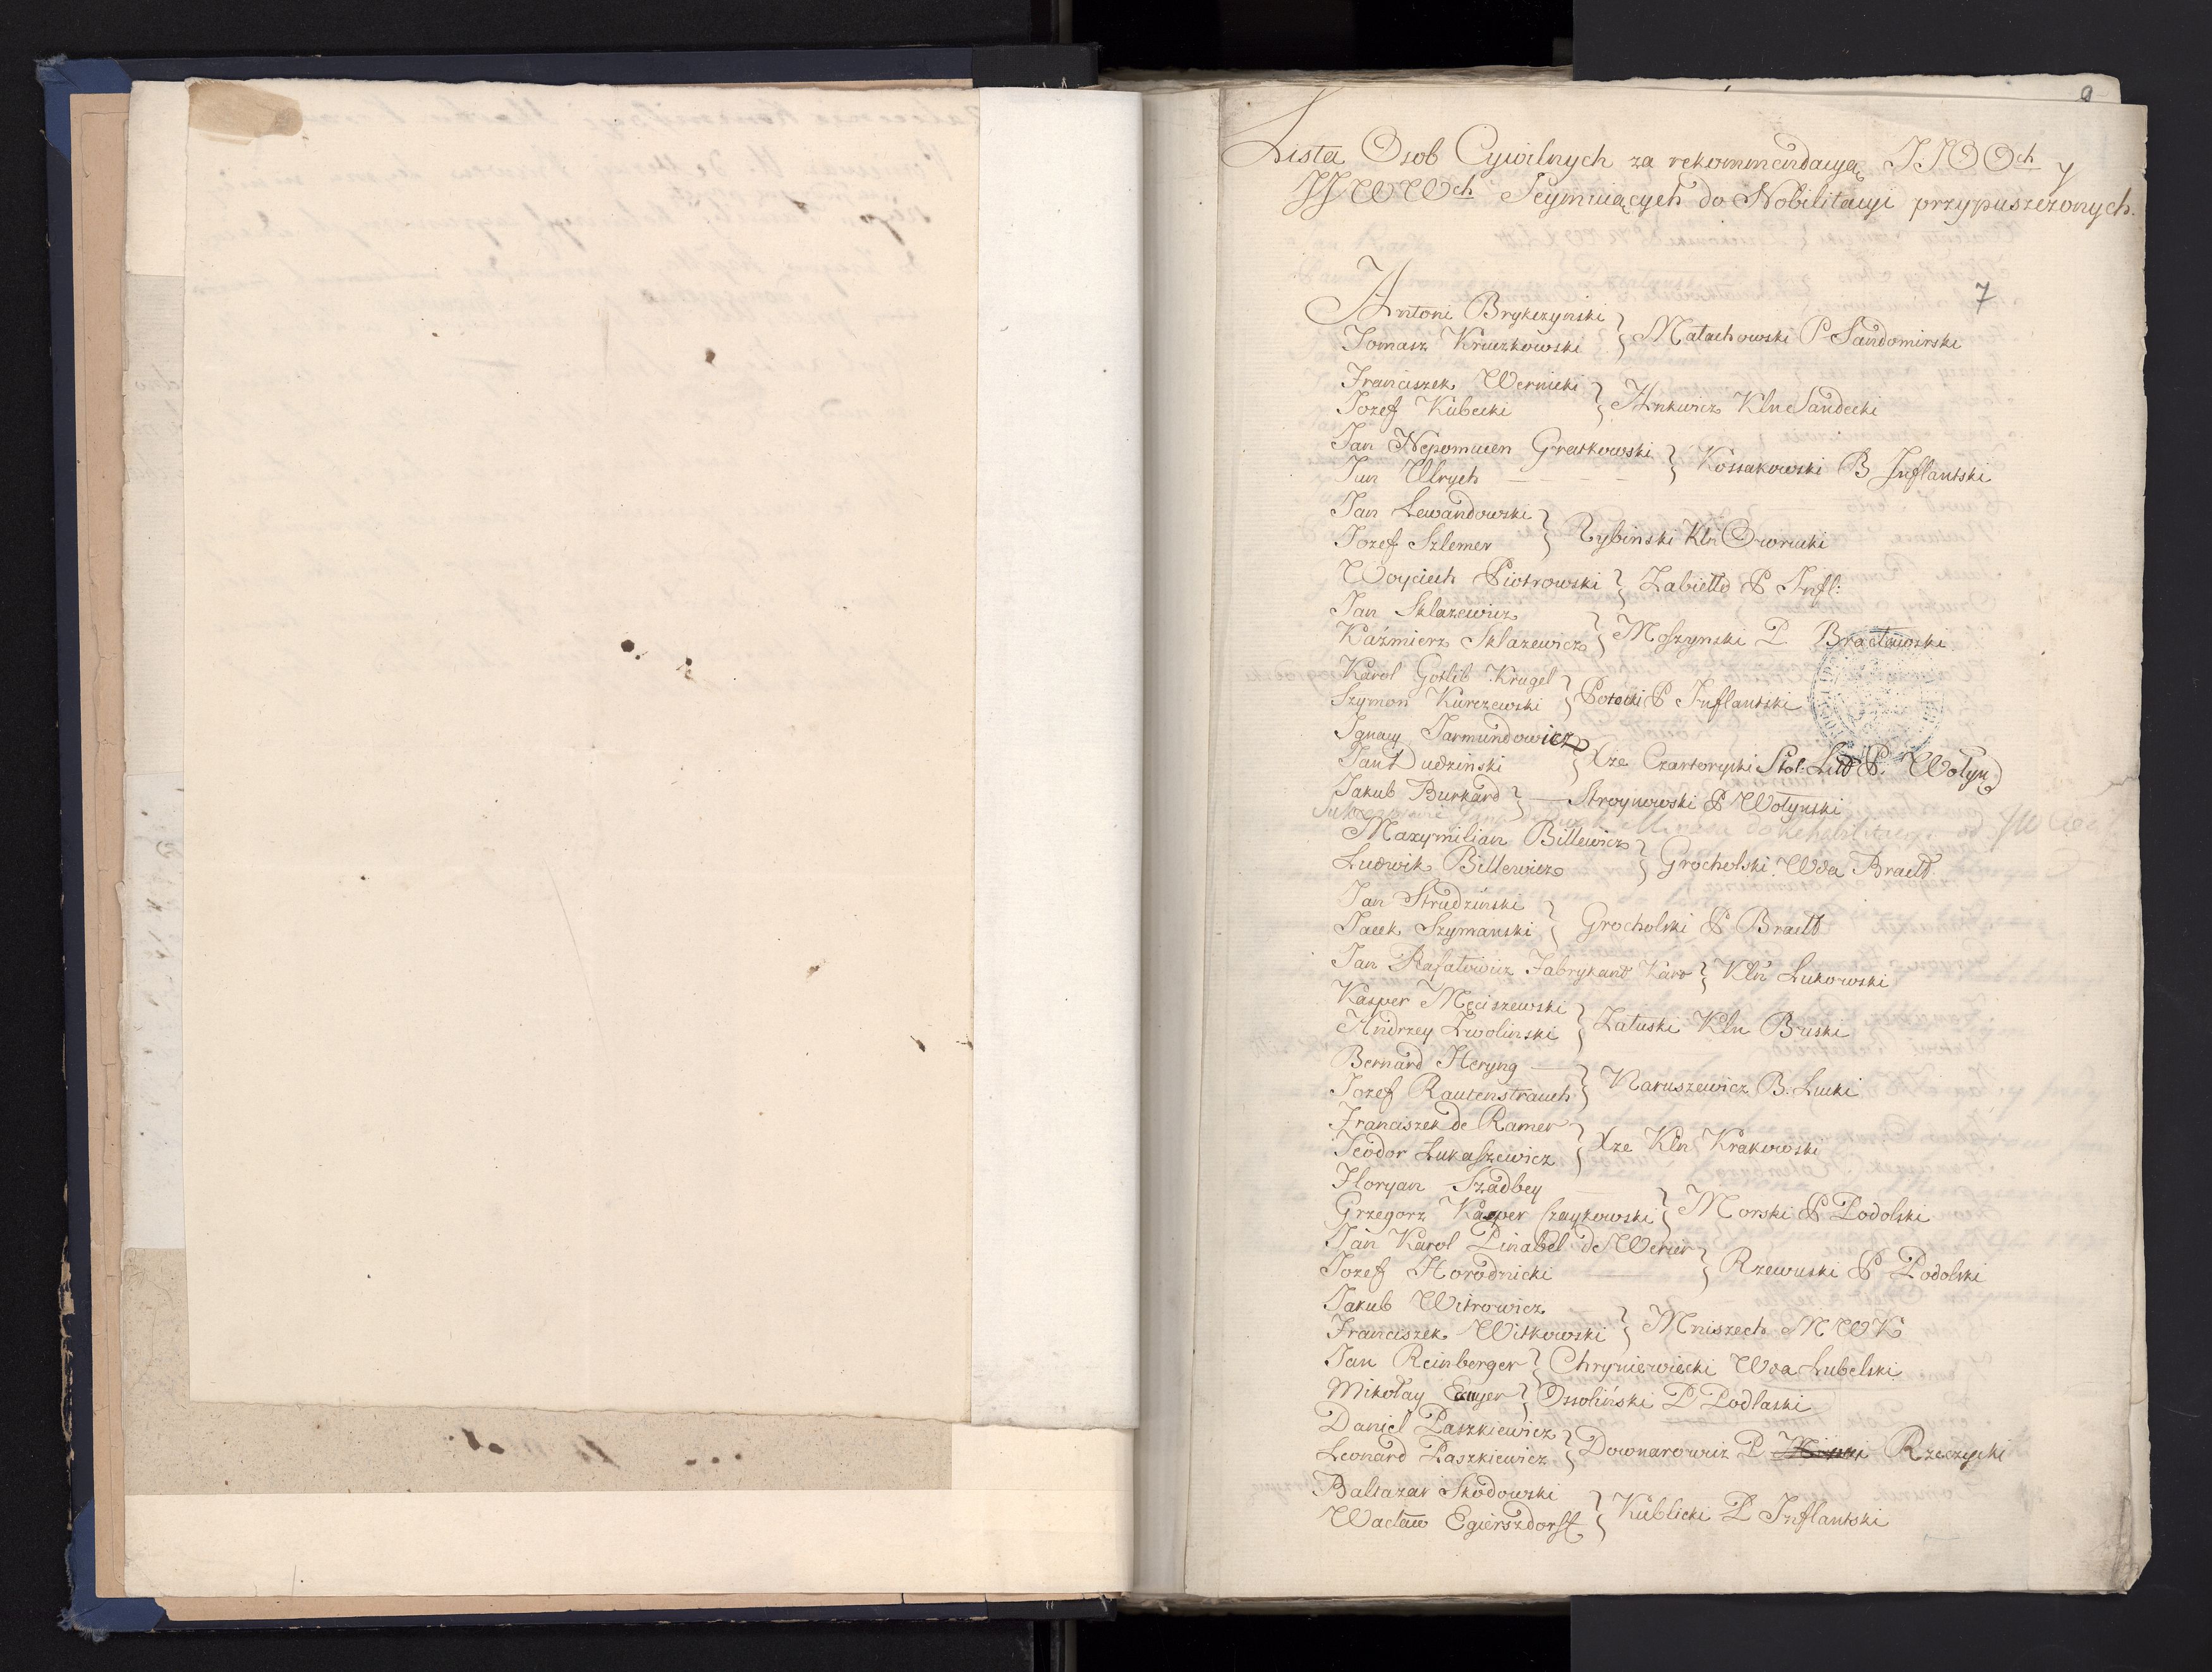 9
Lista Osob Cywilnych za rekommendacyą JJOOch y
JJWWch Seymuiących do Nobilitacyi przypuszczonych.
7
Antoni Brykczynski
Tomasz Kruczkowski } Małachowski P Sandomirski
Franciszek Wernicki
Jozef Kubecki } Ankwicz Kln Sandecki
Jan Nepomucen Gratkowski
Jan Ulrych - - - - } Kossakowski B Inflantski
Jan Lewandowski
Jozef Szlemer } Rybinski Kln Owrucki
Woyciech Piotrowski } Zabiełło P Infl:
Jan Sklazewicz
Kaźmierz Sklazewicz } Moszynski P Bracławski
Karol Gotlib Krugel
Szymon Kurczewski } Potocki P Inflantski
Ignacy Jarmundowicz
Jan Dudzinski } Xze Czartoryski Stol: Litt P. Wołyn
Jakub Burkard } — Stroynowski P Wołynski
Maxymilian Billewicz
Ludwik Billewicz } Grocholski Wda Bracł
Jan Strudziński
Jacek Szymanski } Grocholski P Bracł
Jan Rafałowicz Fabrykant Karo } Kln Lukowski
Kasper Męciszewski
Andrzey Zwolinski } Załuski Kln Buski
Bernard Heryng —
Jozef Rautenstrauch } Naruszewicz B. Lucki
Franciszek de Ramer
Teodor Lukaszewicz } Xze Kln Krakowski
Floryan Szadbey
Grzegorz Kasper Czaykowski } Morski P Podolski
Jan Karol Pinabel de Werier
Jozef Horodnicki — } Rzewuski P Podolski
Jakub Witrowicz
Franciszek Witkowski } Mniszech M W K
Jan Reinberger } Chryniewiecki Wda Lubelski
Mikołay } Ossoliński P Podlaski
Daniel Paszkiewicz
Leonard Paszkiewicz } Downarowicz P Rzeczycki
Baltazar Skodowski
Wacław Egierszdorff } Kublicki P Inflantski